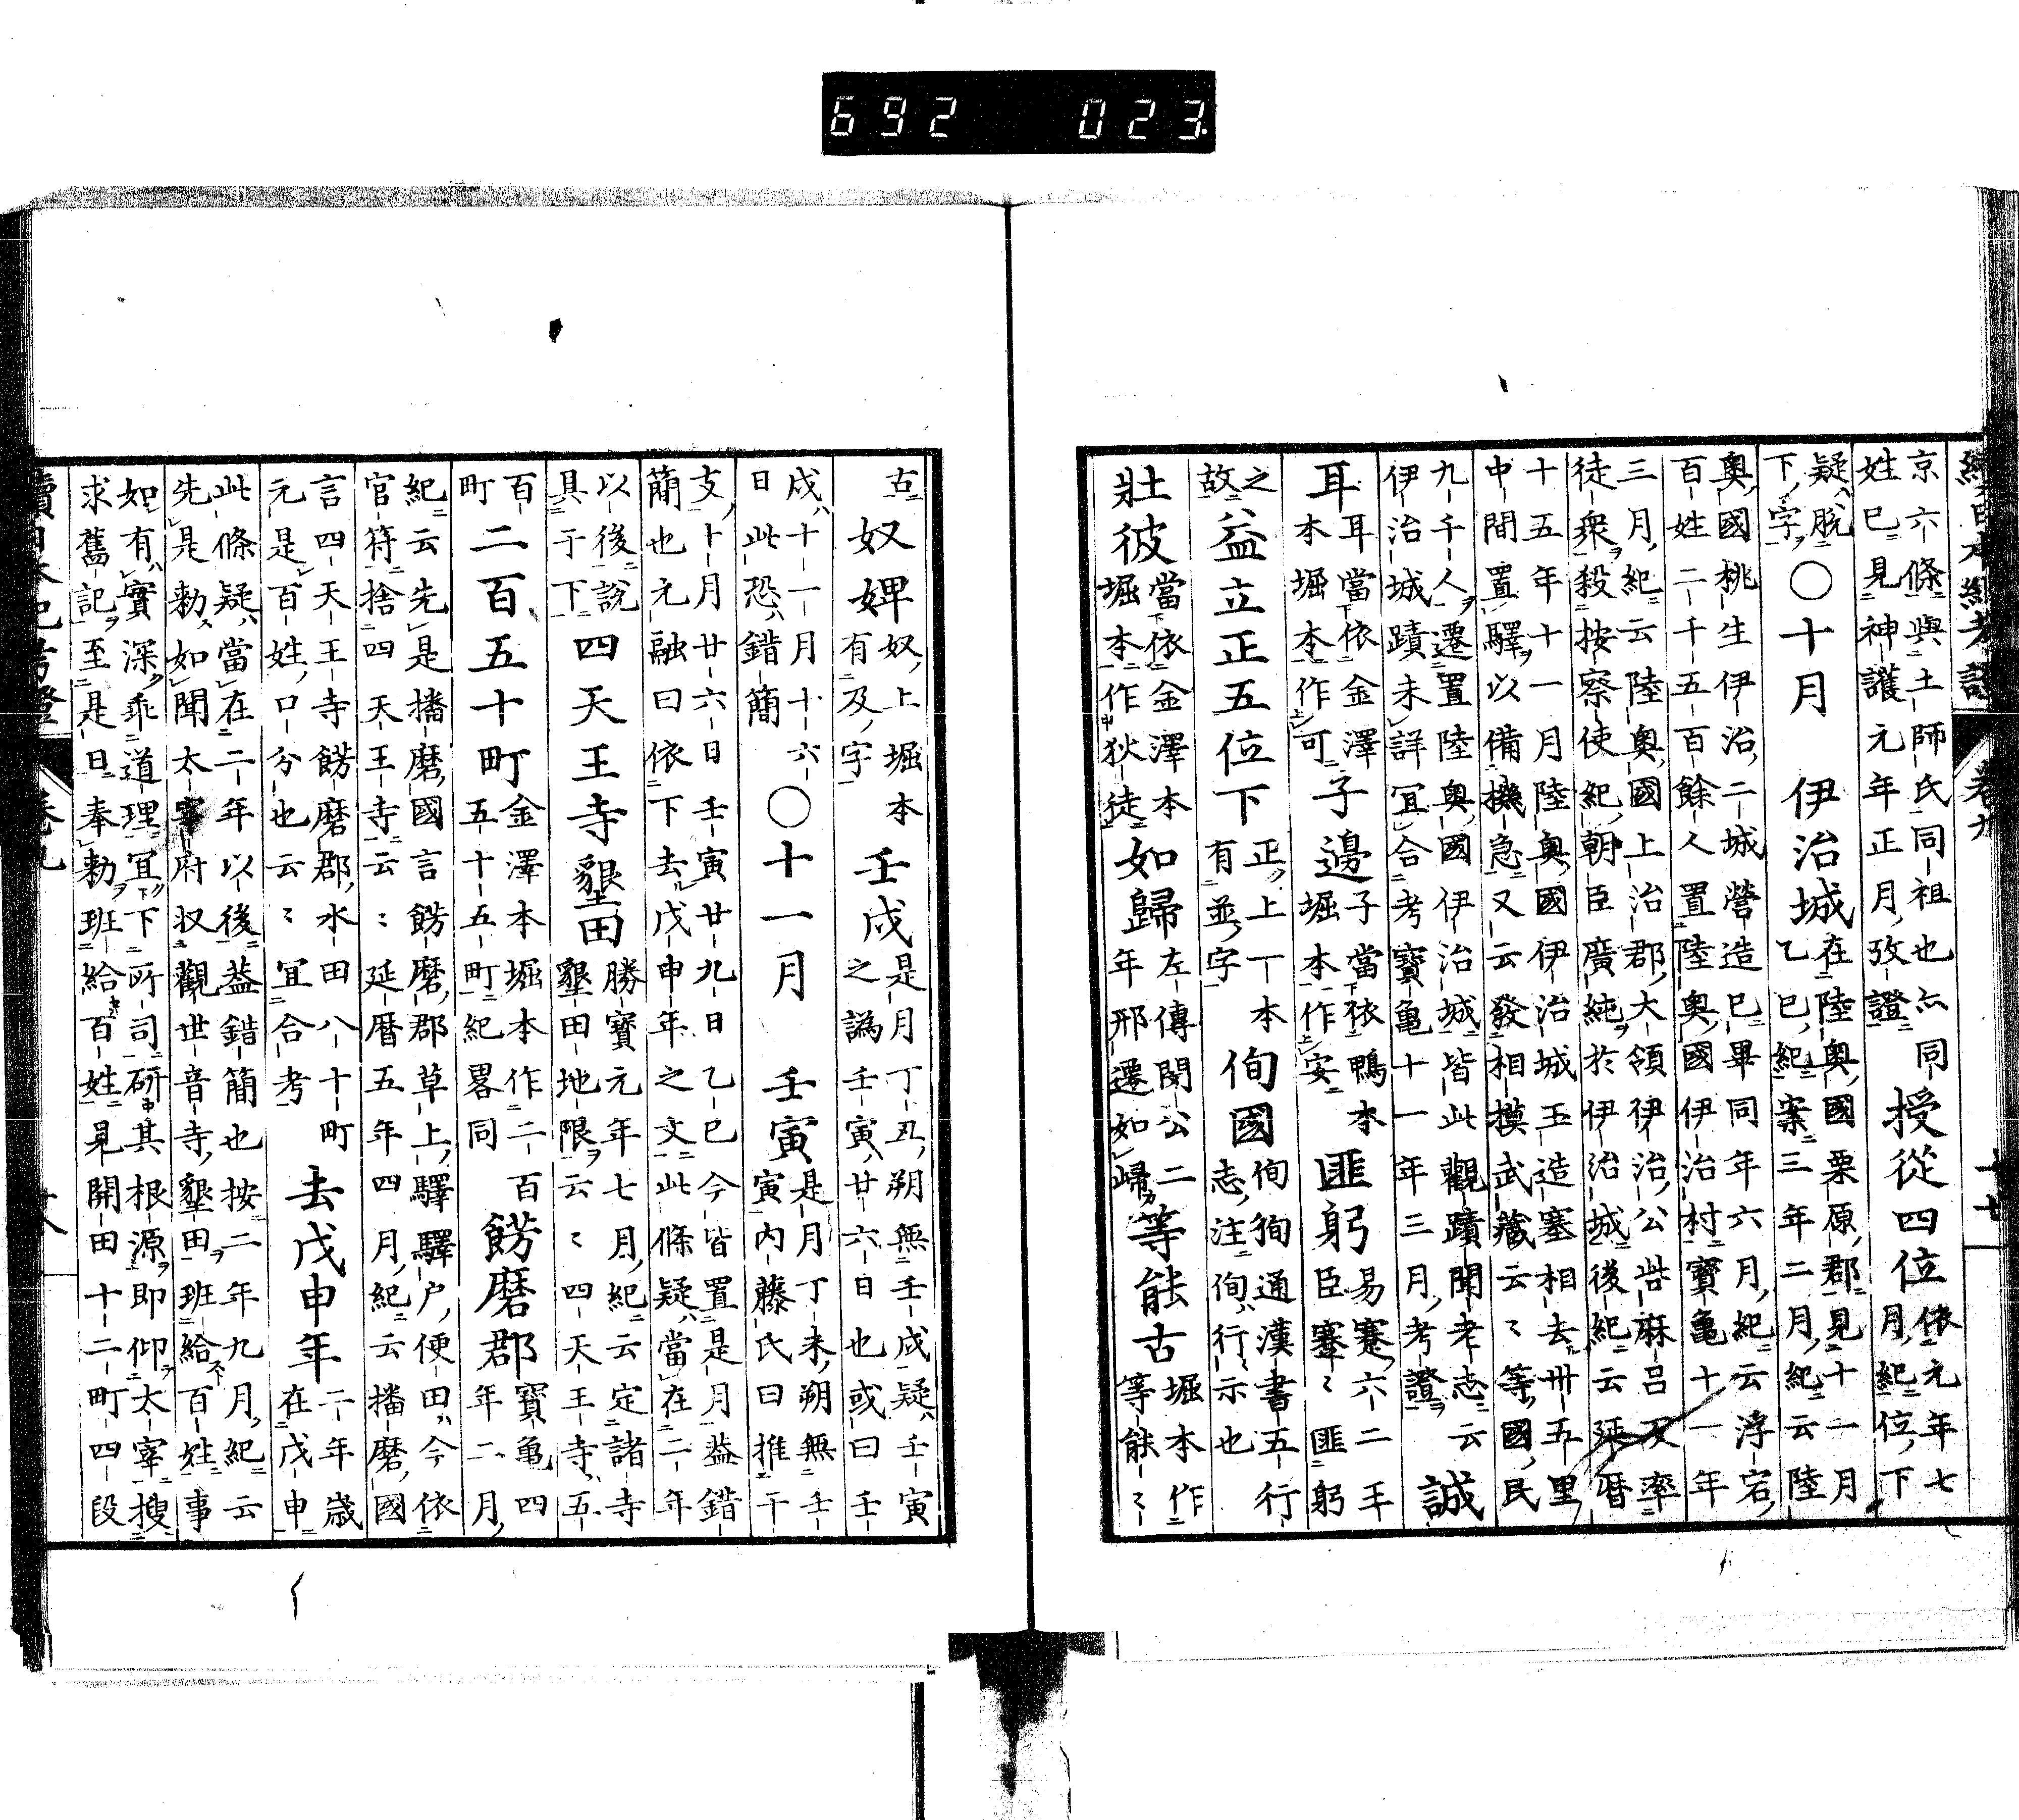 692 023
續日本紀考證 卷九 十七
京六條與土師氏同祖也尒同
姓巳見神護元年正月攷證
授從四位
依元年七
月紀位下
疑脫
下字
○十月 伊治城
在陸奧國栗原郡見十一月
乙巳紀案三年二月紀云陸
奧國桃生伊治二城營造巳畢同年六月紀云浮宕
百姓二千五百餘人置陸奧國伊治村寶亀十一年
三月紀云陸奧國上治郡大領伊治公呰麻呂反率
徒衆殺按察使紀朝臣廣純於伊治城後紀云延暦
十五年十一月陸奧國伊治城玉造塞相去卅五里
中間置驛以備機急又云發相摸武藏云〻等國民
九千人遷置陸奧國伊治城皆此觀蹟聞老志云
伊治城蹟未詳冝合考寶亀十一年三月考證
誠
耳
耳當依金澤
本堀本作可
子邊
子當依鴨本
堀本作安
匪躬
易蹇六二王
臣蹇〻匪躬
之
故
益立正五位下
正上一本
有並字
徇國
徇狥通漢書五行
志注徇行示也
壯彼
當依金澤本
堀本作狄徒
如歸
左傳閔公二
年邢遷如歸
等能古
堀本作
等能〻
古
奴婢
奴上堀本
有及字
壬戍
是月丁丑朔無壬戍疑壬寅
之譌壬寅廿六日也或曰壬
戍十一月十六
日此恐錯簡
○十一月 壬寅
是月丁未朔無壬
寅内藤氏曰推干
支卜月廿六日壬寅廿九日乙巳今皆置是月葢錯
簡也元融曰依下去戊申年之文此條疑當在二年
以後說
具于下
四天王寺墾田
勝寶元年七月紀云定諸寺
墾田地限云〻四天王寺五
百
町
二百五十町
金澤本堀本作二百
五十五町紀畧同
餝磨郡
寶亀四
年二月
紀云先是播磨國言餝磨郡草上驛驛户便田今依
官符捨四天王寺云〻延暦五年四月紀云播磨國
言四天王寺餝磨郡水田八十町
元是百姓口分也云〻冝合考
去戊申年
二年歳
在戊申
此條疑當在二年以後葢錯簡也按二年九月紀云
先是勅如聞太宰府収觀世音寺墾田班給百姓事
如有實深乖道理冝下所司研其根源即仰太宰搜
求舊記至是日奉勅班給百姓見開田十二町四段